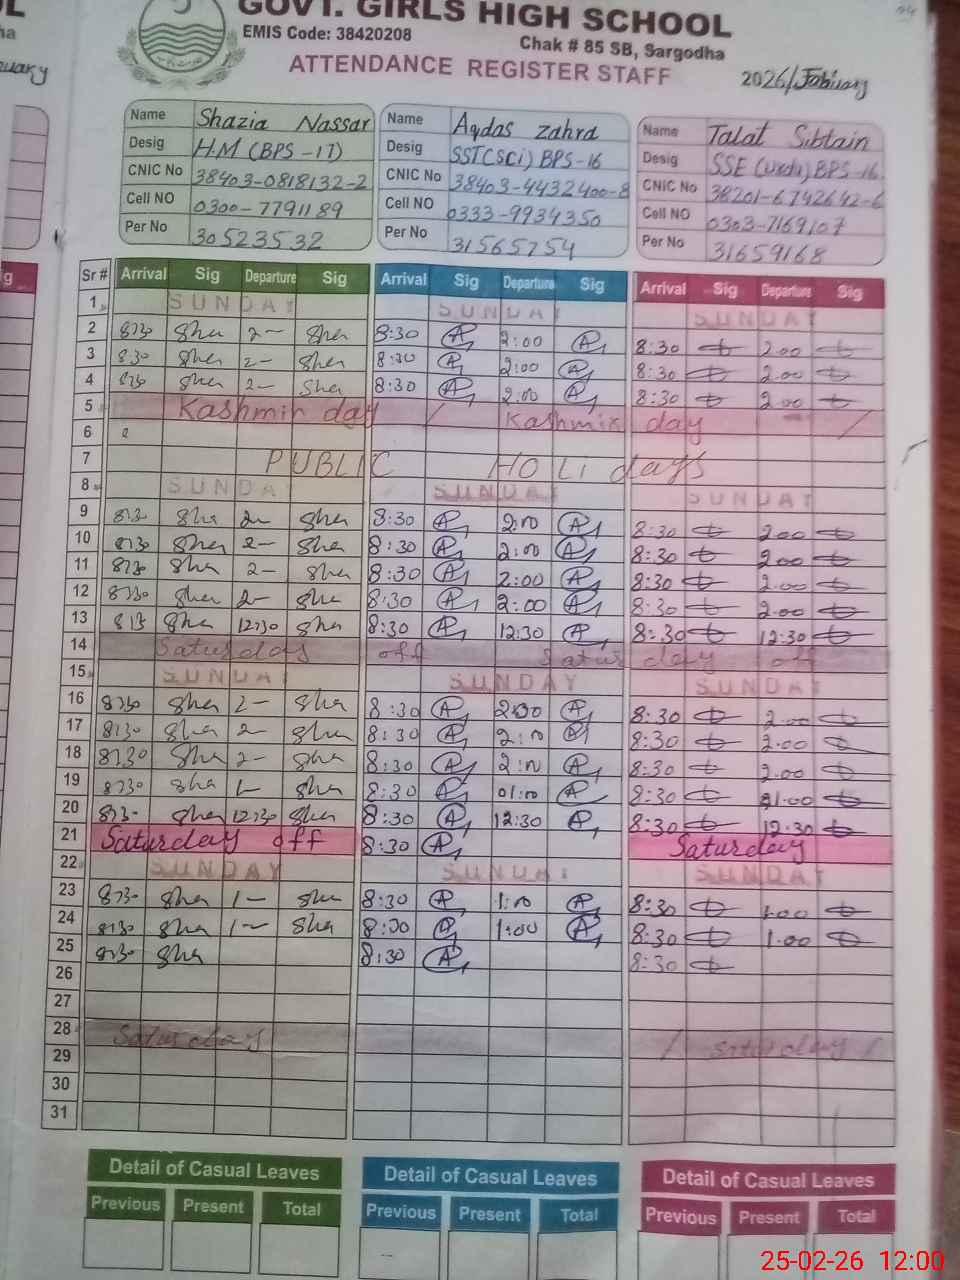 GOVT. GIRLS HIGH SCHOOL
EMIS Code: 38420208
Chak # 85 SB, Sargodha
ATTENDANCE REGISTER STAFF
2026/
Name Shazia Nassar Name Aqdas Zahra Name Talat Sibtain
Desig H.M (BPS-17) Desig SST(SCi) BPS-16 Desig SSE (Urdu) BPS-16
CNIC No 38403-0818132-2 CNIC No 38403-4432400-8 CNIC No 38201-6742642-6
Cell NO 0300-7791189 Cell NO 0333-9934350 Cell NO 0303-7169107
Per No 30523532 Per No 31565754 Per No 31659168
Sr # Arrival Sig Departure Sig Arrival Sig Departure Sig Arrival Sig Departure Sig
1 SUNDAY SUNDAY SUNDAY
2 830 Sha 2- Sha 8:30 A 2:00 A 8:30 2.00
3 830 Sha 2- Sha 8:30 A 2:00 A 8:30 2.00
4 830 Sha 2- Sha 8:30 A 2:00 A 8:30 2.00
5 Kashmir day / Kashmir day /
6
7 PUBLIC HOLidays
8 SUNDAY SUNDAY SUNDAY
9 830 Sha 2- Sha 8:30 A 2:00 A 8:30 2.00
10 830 Sha 2- Sha 8:30 A 2:00 A 8:30 2.00
11 830 Sha 2- Sha 8:30 A 2:00 A 8:30 2.00
12 830 Sha 2- Sha 8:30 A 2:00 A 8:30 2.00
13 Sha 12:30 Sha 8:30 A 12:30 A 8:30 12:30
14 Saturday off Saturday off
15 SUNDAY SUNDAY SUNDAY
16 830 Sha 2- Sha 8:30 A 2:00 A 8:30 2.00
17 830 Sha 2- Sha 8:30 A 2:00 A 8:30 2.00
18 8:30 Sha 2- Sha 8:30 A 2:00 A 8:30 2.00
19 830 Sha 1- Sha 8:30 A 01:00 A 8:30 1.00
20 830 Sha 12:30 Sha 8:30 A 12:30 A 8:30 12:30
21 Saturday off 8:30 A Saturday
22 SUNDAY SUNDAY SUNDAY
23 830 Sha 1- Sha 8:30 A 1:00 A 8:30 1.00
24 830 Sha 1- Sha 8:30 A 1:00 A 8:30 1.00
25 830 Sha 8:30 A 8:30
26
27
28 Saturday / Saturday /
29
30
31
Detail of Casual Leaves Detail of Casual Leaves Detail of Casual Leaves
Previous Present Total Previous Present Total Previous Present Total
25-02-26 12:00